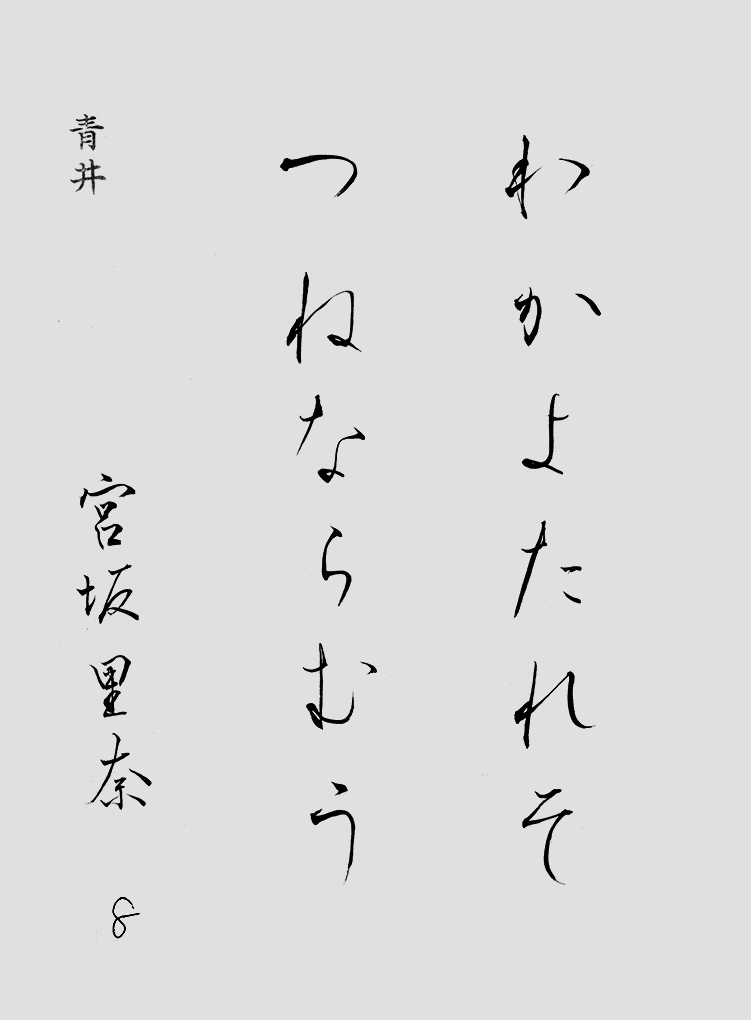 わかよたれそ
つねならむう
青井
宮坂里奈
8